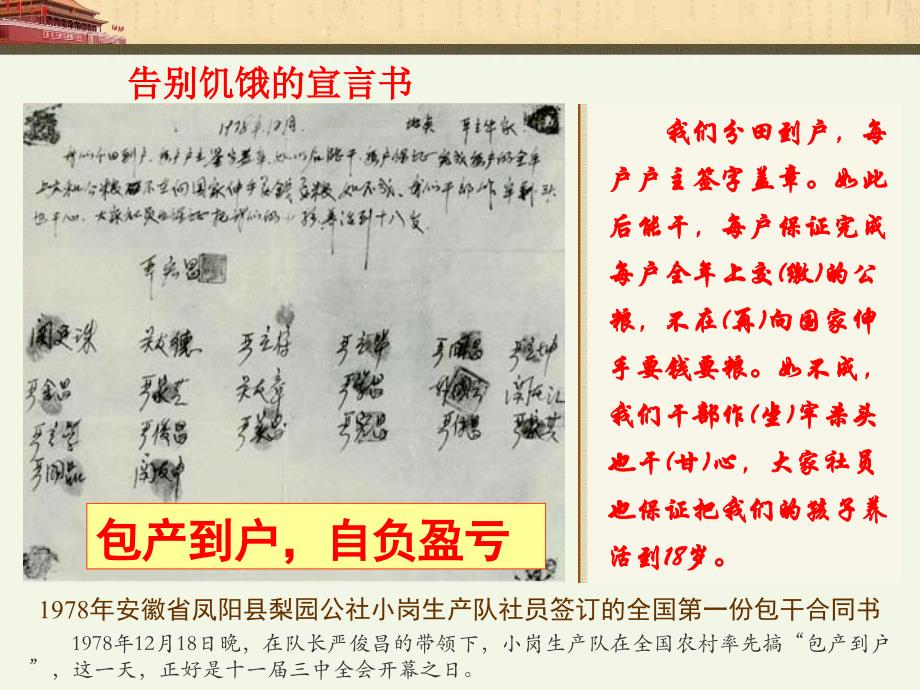 告别饥饿的宣言书
1978年12月 地点 严立华家
我们分田到户,每户户主签字盖章,如以后能干,每户保证完成每户的全年
上交和公粮,不在向国家伸手要钱要粮,如不成,我们干部作牢刹头
也干心,大家社员也保证把我们的小孩养活到十八岁。
严宏昌
关廷珠 关友德 严立符 严立华 严国昌 严立坤
严金昌 严家芝 关友章 严学昌 韩国云 关友江
严立学 严俊昌 严美昌 严宏昌 严付昌 严家其
严国品 关友申
包产到户,自负盈亏
我们分田到户,每
户户主签字盖章。如此
后能干,每户保证完成
每户全年上交(缴)的公
粮,不在(再)向国家伸
手要钱要粮。如不成,
我们干部作(坐)牢杀头
也干(甘)心,大家社员
也保证把我们的孩子养
活到18岁。
1978年安徽省凤阳县梨园公社小岗生产队社员签订的全国第一份包干合同书
1978年12月18日晚,在队长严俊昌的带领下,小岗生产队在全国农村率先搞“包产到户
”,这一天,正好是十一届三中全会开幕之日。